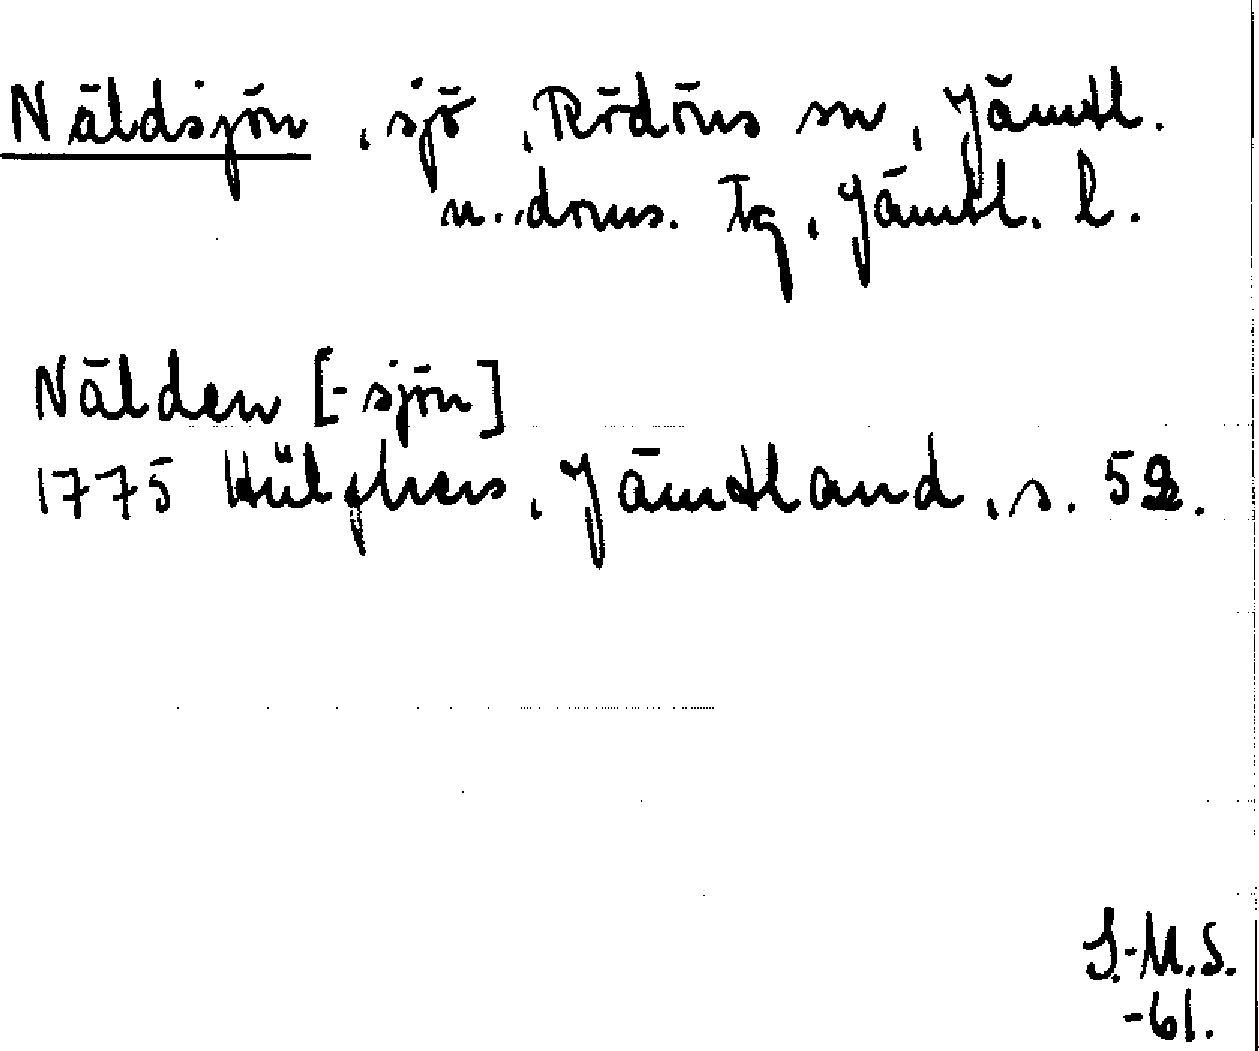 Näldsjön, sjö, Rödöns sn, Jämtl.
n. doms. tg, Jämtl. l.
Nälden [-sjön]
1775 Hülphers, Jämtland, s. 52.
S.-M.S.
-61.